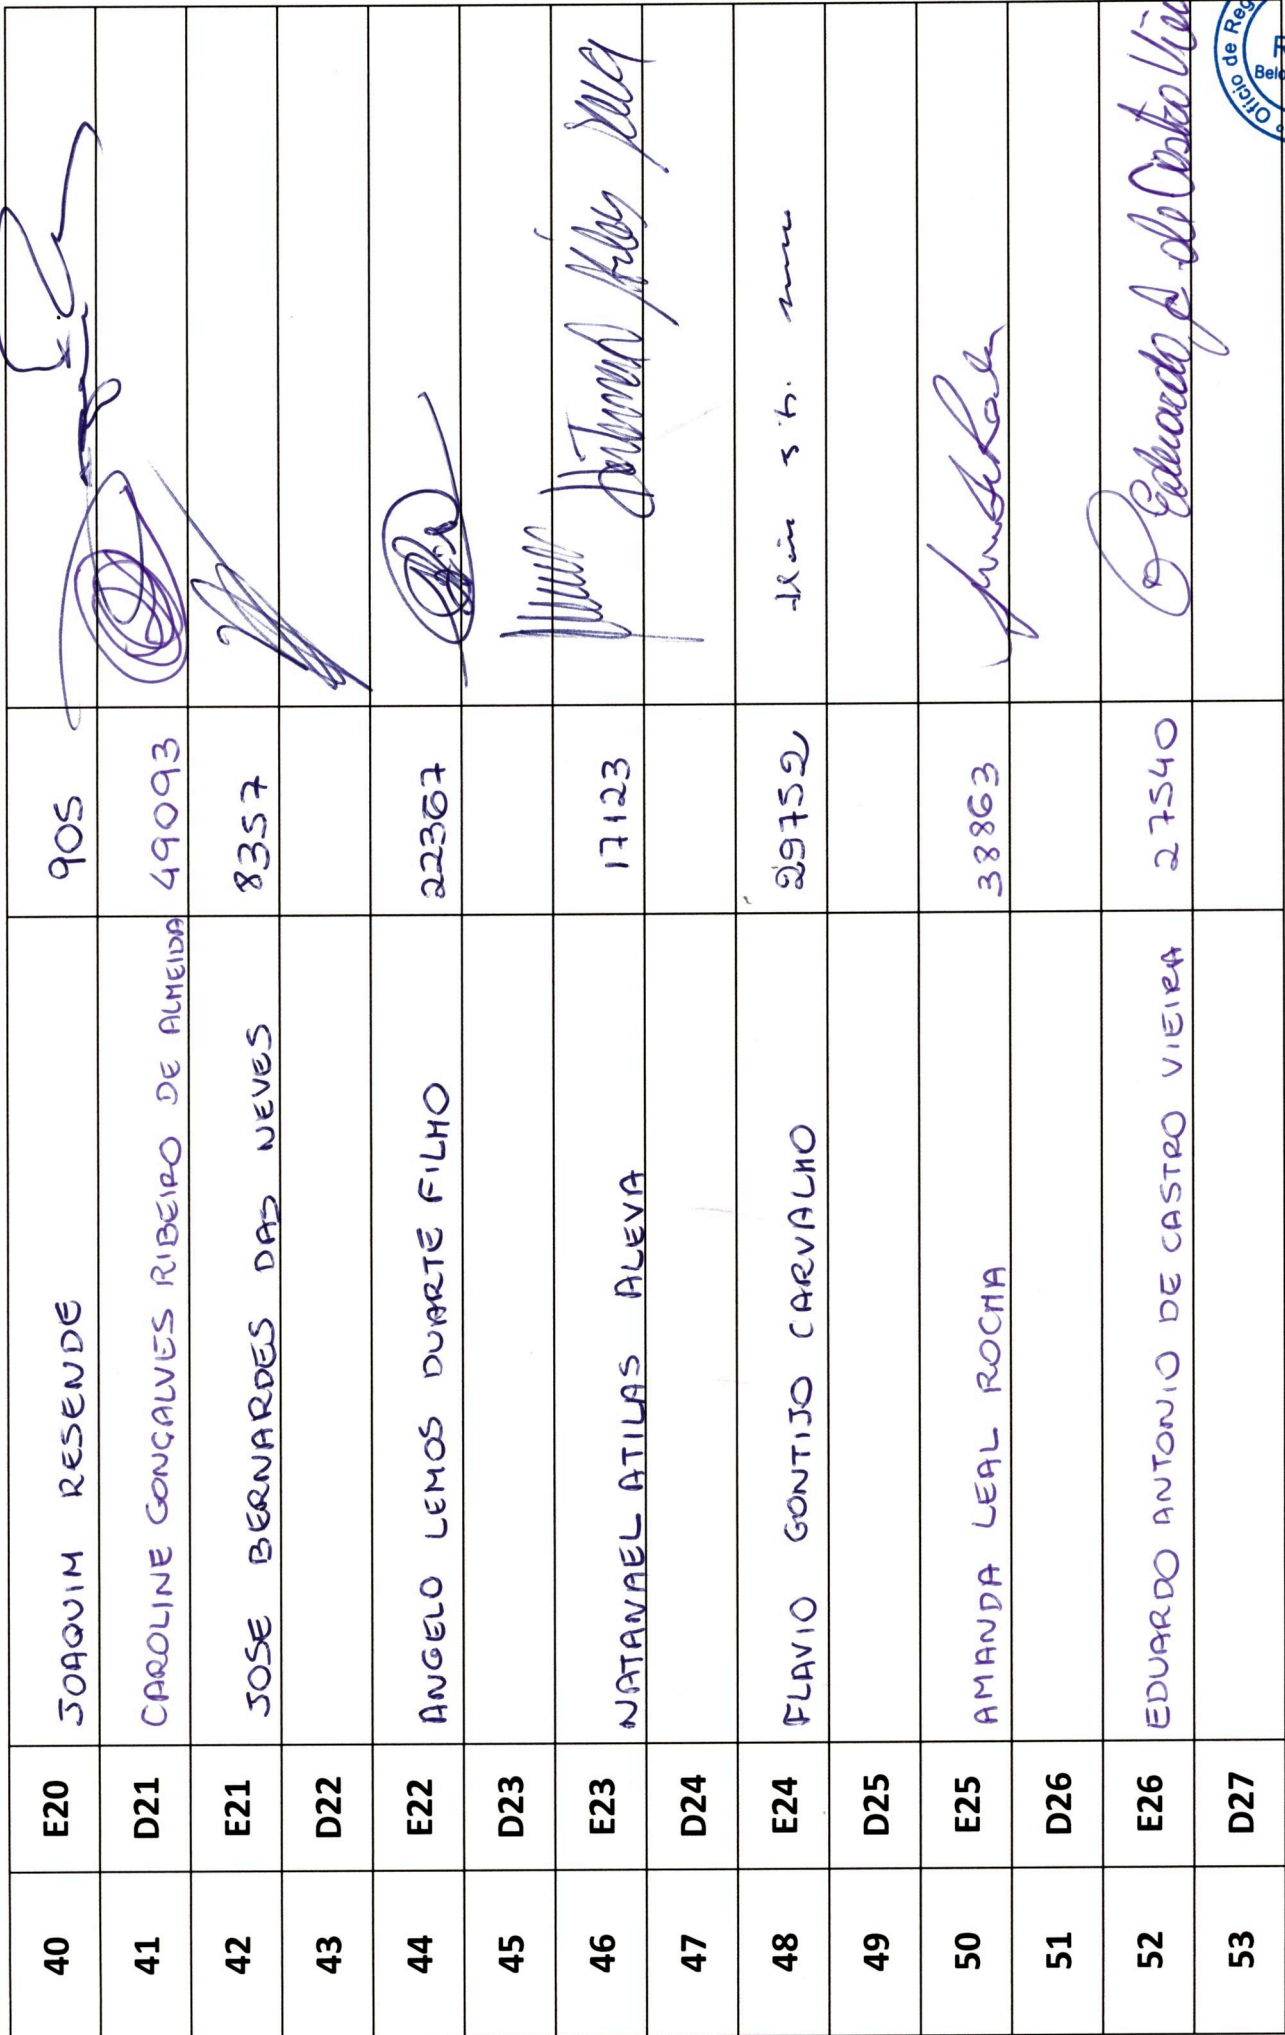 40 E20 JOAQUIM RESENDE 905
41 D21 CAROLINE GONÇALVES RIBEIRO DE ALMEIDA 49093
42 E21 JOSE BERNARDES DAS NEVES 8357
43 D22
44 E22 ANGELO LEMOS DUARTE FILHO 22367
45 D23
46 E23 NATANAEL ATILAS ALEVA 17123
47 D24
48 E24 FLAVIO GONTIJO CARVALHO 29752
49 D25
50 E25 AMANDA LEAL ROCHA 38863
51 D26
52 E26 EDUARDO ANTONIO DE CASTRO VIEIRA 27540 Eduardo A de Castro
53 D27
Ofício de Reg
Belo